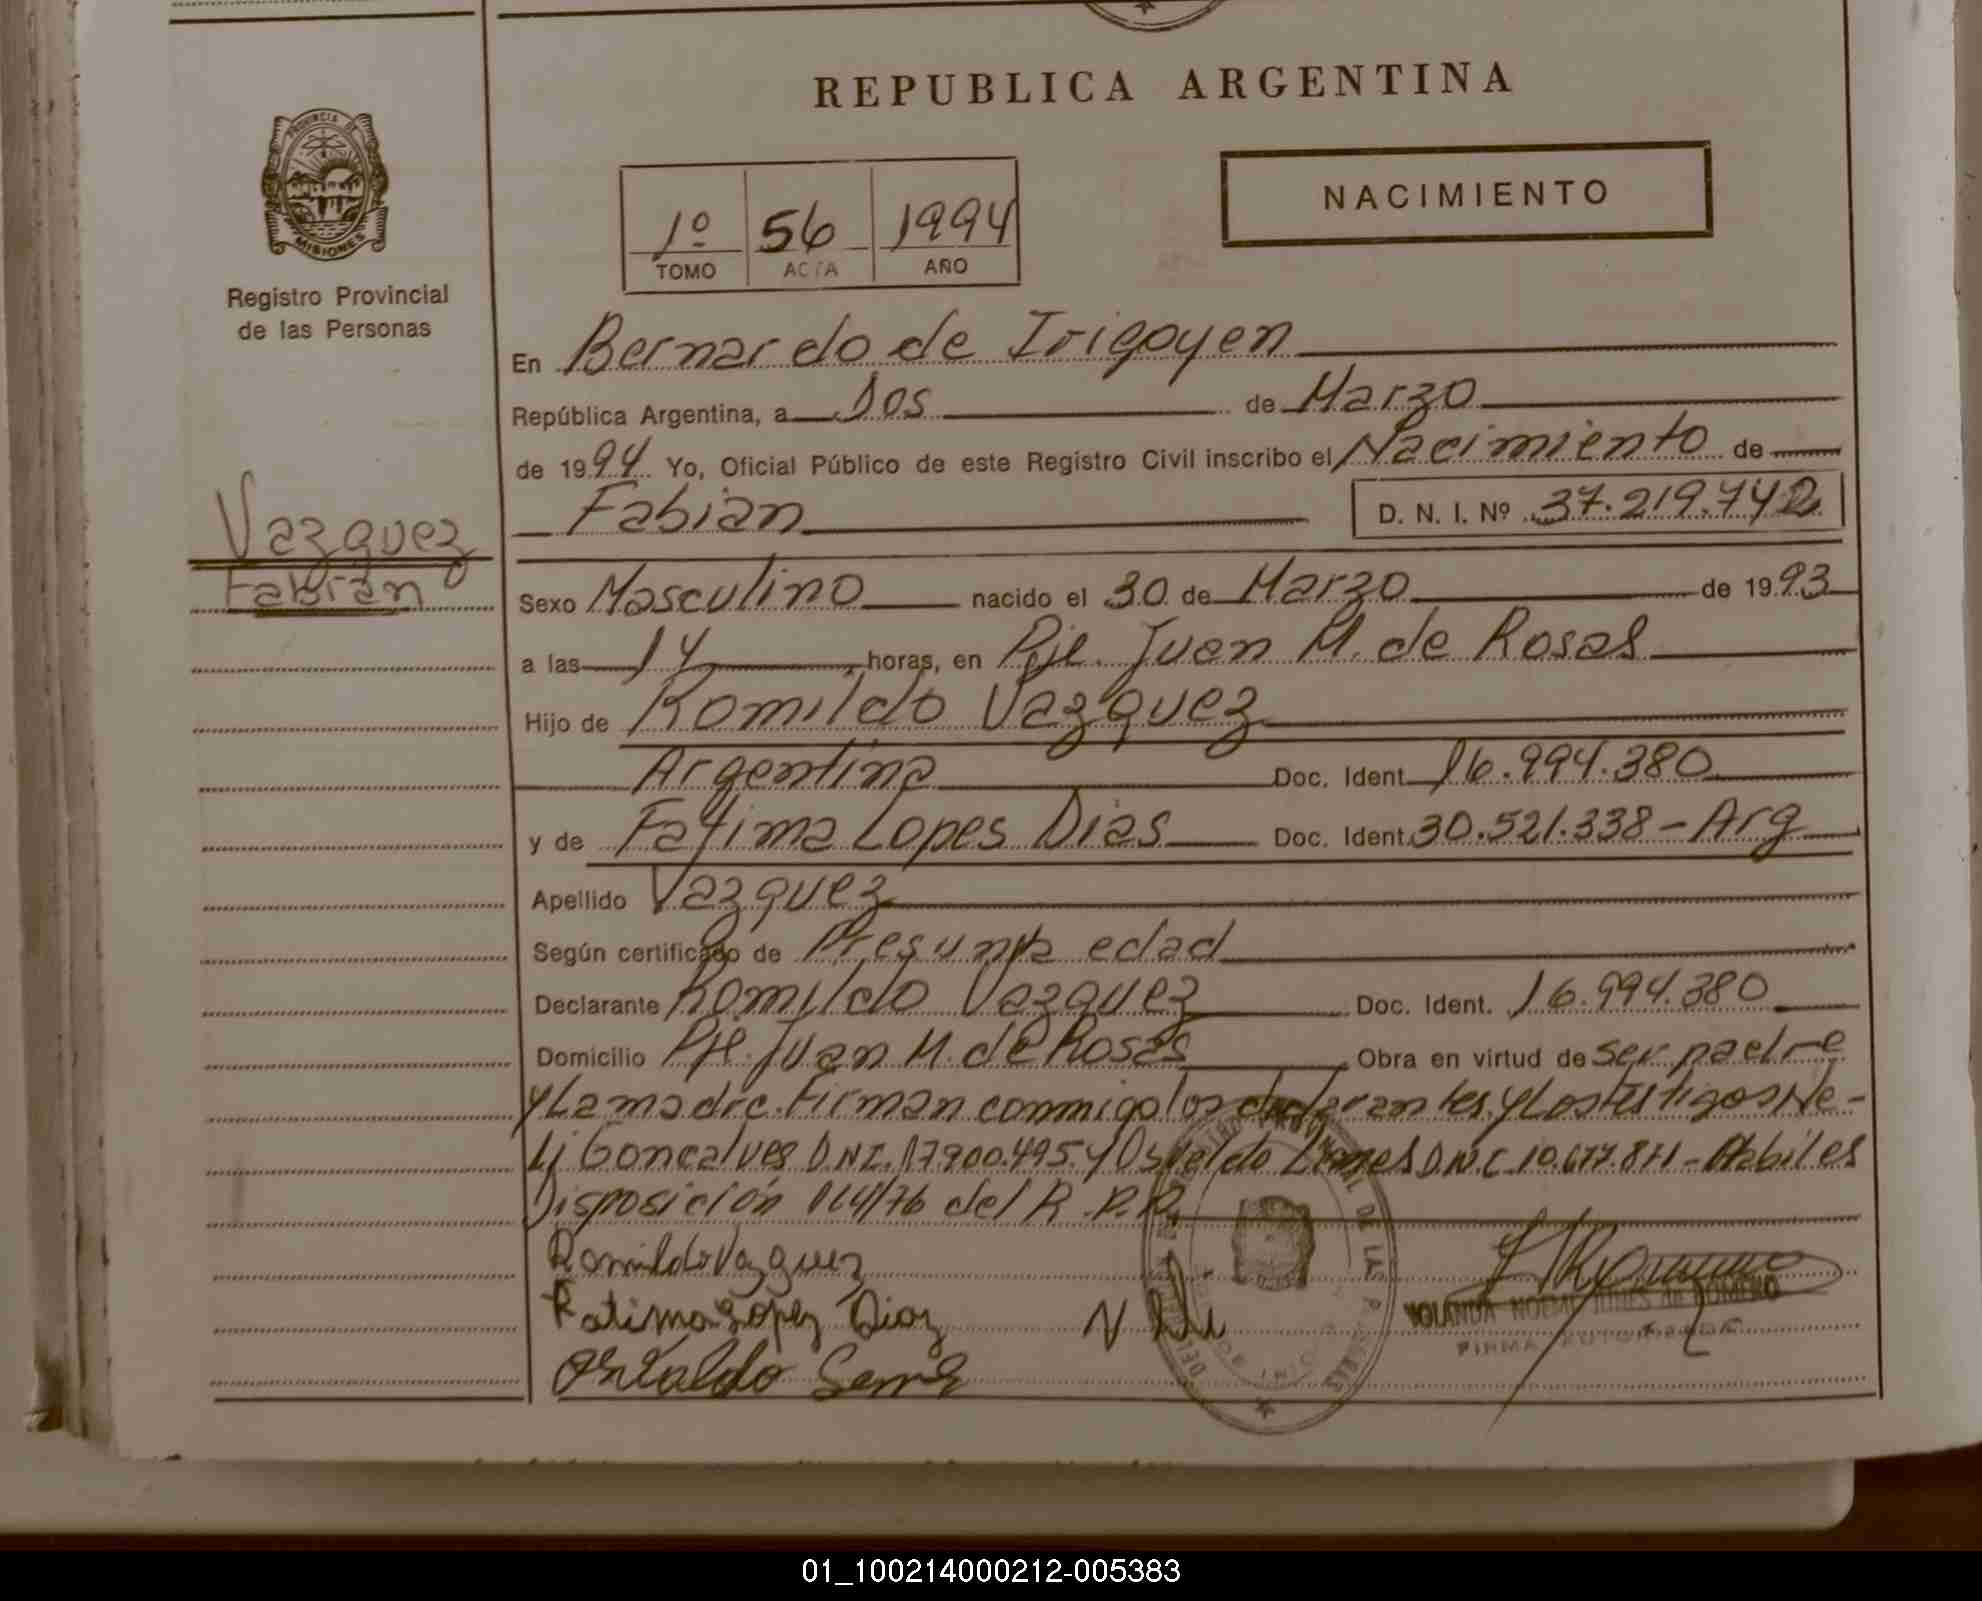 REPUBLICA ARGENTINA
PROVINCIA DE
MISIONES
Registro Provincial
de las Personas
NACIMIENTO
1º 56 1994
TOMO ACTA AÑO
En Bernardo de Irigoyen
República Argentina, a Dos de Marzo
de 1994 Yo, Oficial Público de este Registro Civil inscribo el Nacimiento de
Fabian D. N. I. Nº 37.219.742
Vazquez
Fabian
Sexo Masculino nacido el 30 de Marzo de 1993
a las 14 horas, en Pje. Juan M. de Rosas
Hijo de Romildo Vazquez
Argentina Doc. Ident. 16.994.380
y de Fatima Lopes Dias Doc. Ident. 30.521.338 - Arg
Apellido Vazquez
Según certificado de Presunta edad
Declarante Romildo Vazquez Doc. Ident. 16.994.380
Domicilio Pje. Juan M. de Rosas Obra en virtud de ser padre
y La madre. Firman conmigo los declarantes y Los testigos Ne-
li Goncalves D.N.I. 17.900.495. y Osvaldo D.N.I. 10.677.871 - Habiles
Disposición 164/76 del R.P.P.
Romildo Vazquez
Fatima Lopez Diaz
Osvaldo
YOLANDA NOEMI de ROMERO
FIRMA AUTORIZADA
01_100214000212-005383